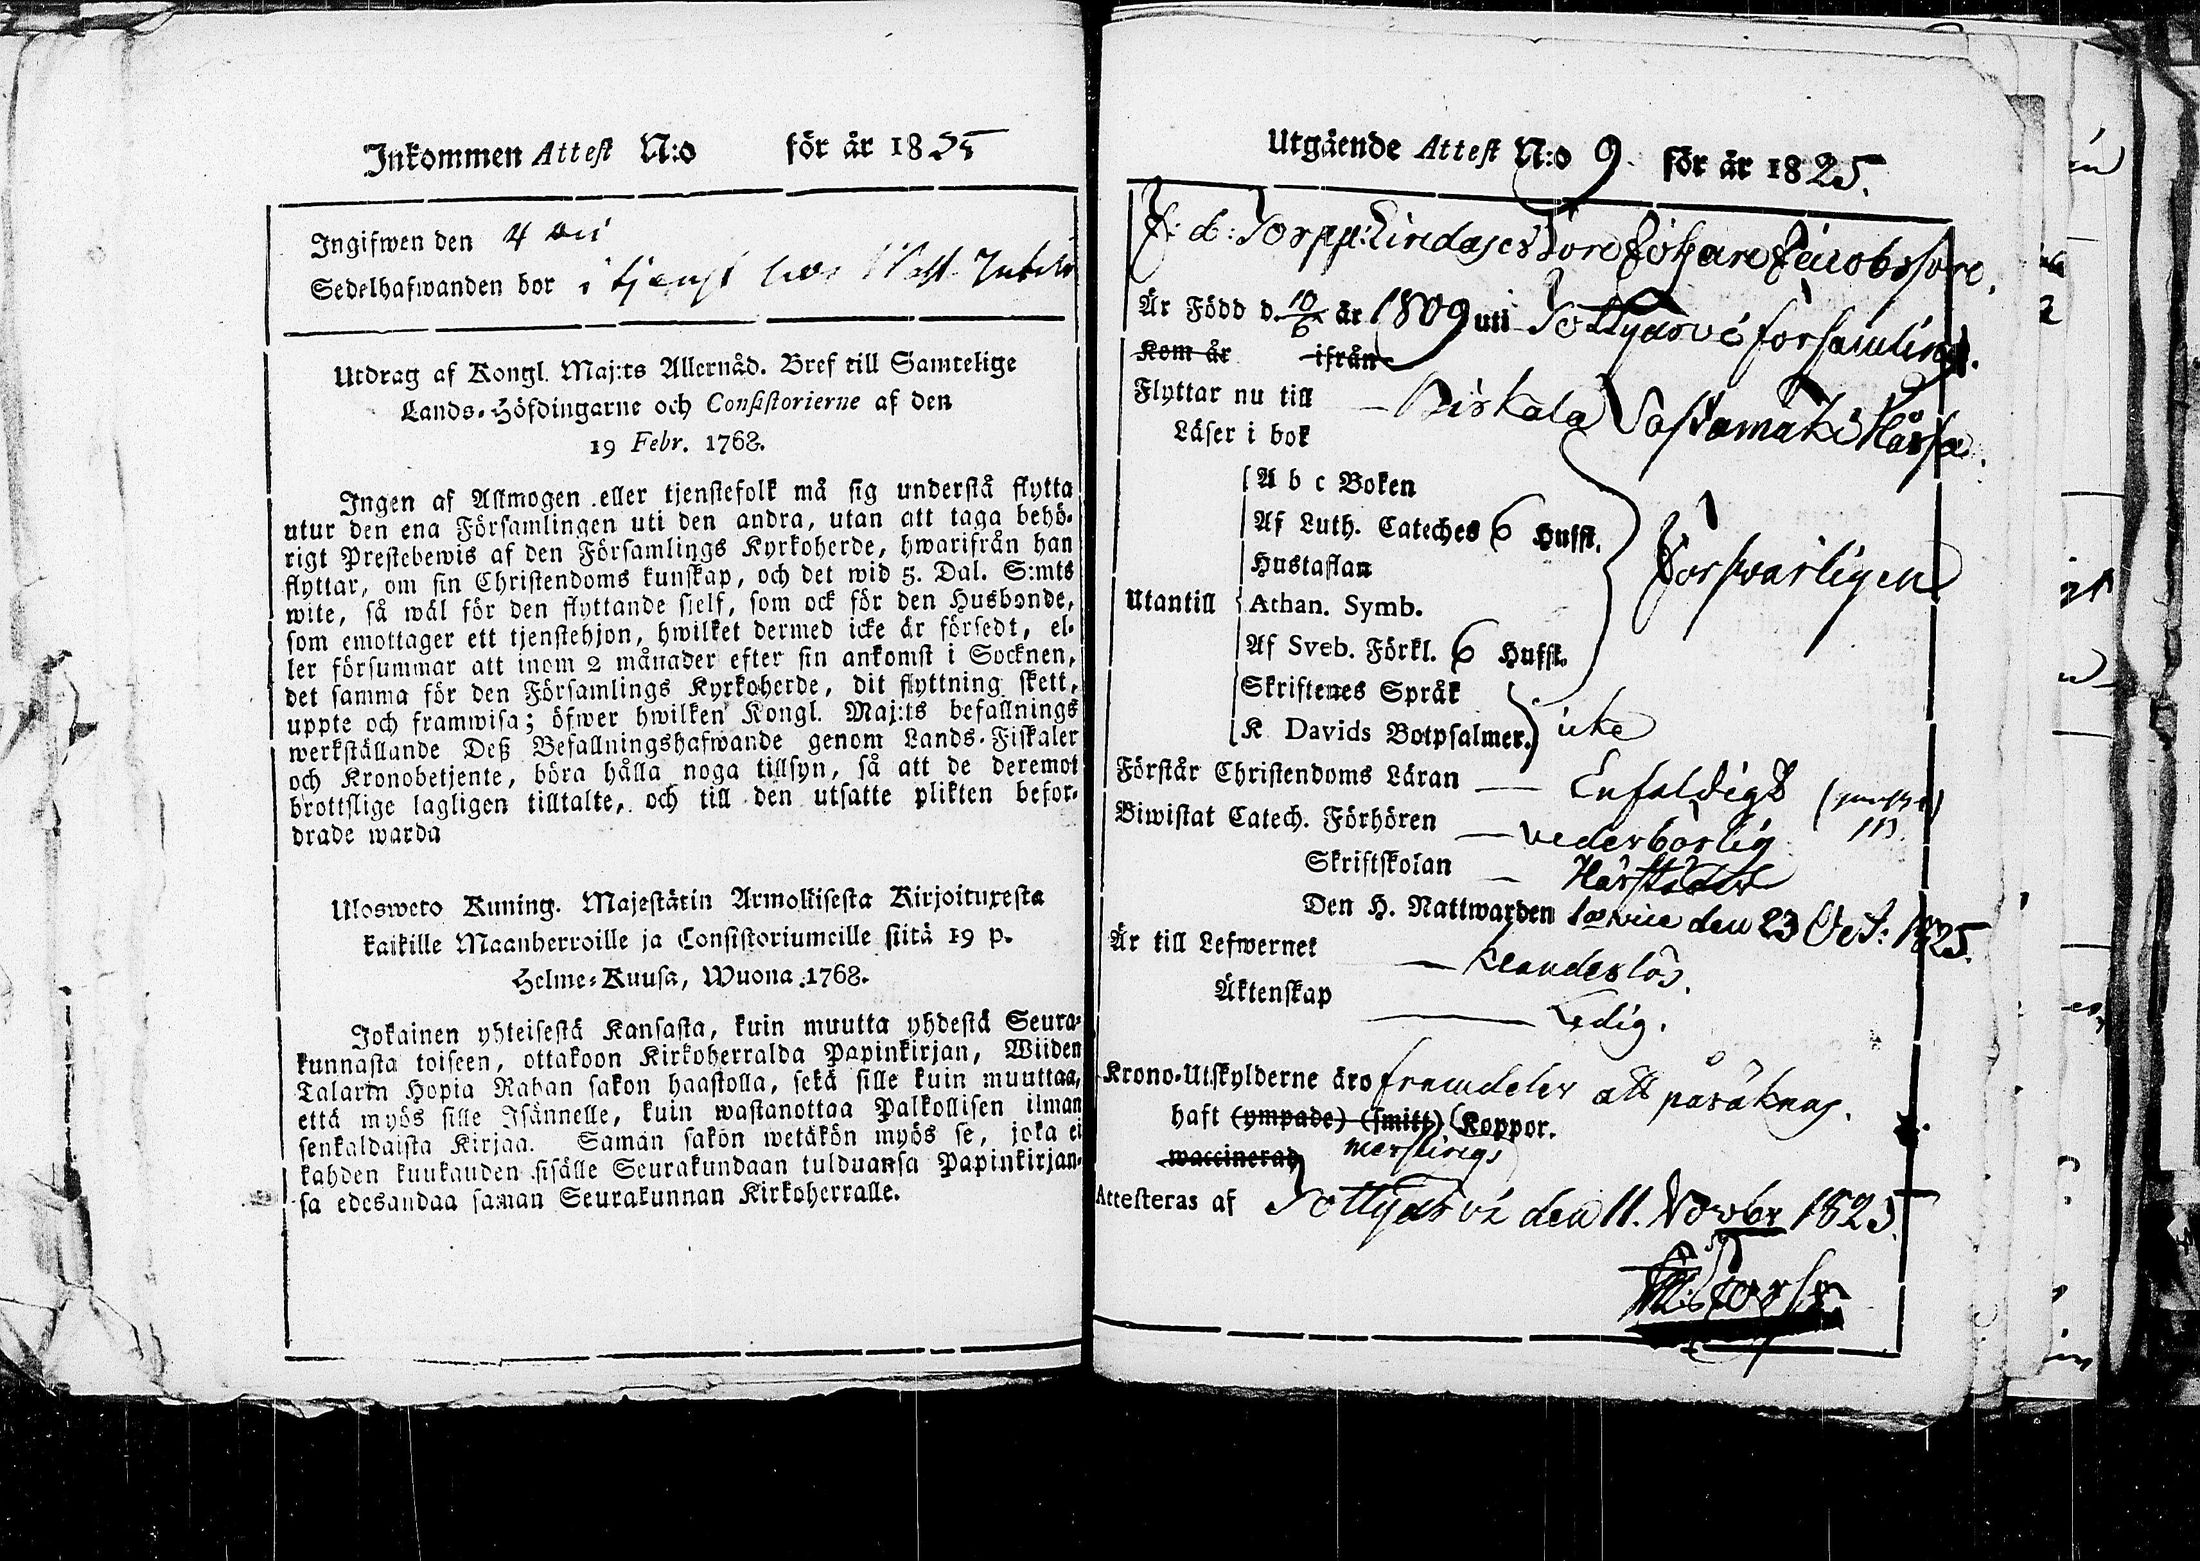 Inkommen Attest N:o för år 1825
Ingifwen den 4
Sedelhafwanden bor i tjenst hos
Utdrag af Kongl. Maj:ts Allernåd. Bref till Samtelige
Lands-Höfdingarne och Consistorierne af den
19 Febr. 1768.
Ingen af Allmogen eller tjenstefolk må sig understå flytta
utur den ena Församlingen uti den andra, utan att taga behö-
rigt Prestebewis af den Församlings Kyrkoherde, hwarifrån han
flyttar, om sin Christendoms kunskap, och det wid 5. Dal. S:mts
wite, så wäl för den flyttande sielf, som ock för den Husbonde,
som emottager ett tjenstehjon, hwilket dermed icke är försedt, el-
ler försummar att inom 2 månader efter sin ankomst i Socknen,
det samma för den Församlings Kyrkoherde, dit flyttning skett,
uppte och framwisa; öfwer hwilken Kongl. Maj:ts befallnings
werkställande Deß Befallningshafwande genom Lands-Fiskaler
och Kronobetjente, böra hålla noga tillsyn, så att de deremot
brottslige lagligen tilltalte, och till den utsatte plikten befor-
drade warda
Ulosweto Kuning. Majestätin Armollisesta Kirjoituxesta
kaikille Maanherroille ja Consistoriumeille siitä 19 p.
Helme-Kuusa, Wuona 1768.
Jokainen yhteisestä Kansasta, kuin muutta yhdestä Seura-
kunnasta toiseen, ottakoon Kirkoherralda Papinkirjan, Wiiden
Talarin Hopia Rahan sakon haastolla, sekä sille kuin muuttaa,
että myös sille Isännelle, kuin wastanottaa Palkollisen ilman
senkaldaista Kirjaa. Saman sakon wetäkön myös se, joka ei
kahden kuukauden sisälle Seurakundaan tulduansa Papinkirjan-
sa edesandaa saman Seurakunnan Kirkoherralle.
Utgående Attest N:o 9. för år 1825.
F: d: Torpp: Lindages Son Johan Jacobsson.
Är Född d. 10/6 år 1809 uti Tottijärvi församling.
Kom år ifrån
Flyttar nu till Birkala Sastamäki
Läser i bok
A b c Boken
Af Luth. Cateches 6 Hufst.
Hustaflan
Försvarligen
Utantill Athan. Symb.
Af Sveb. Förkl. 6 Hufst.
Skriftenes Språk
K Davids Botpsalmer. icke
Förstår Christendoms Läran Enfaldigt
Biwistat Catech. Förhören vederbörlig
Skriftskolan Härstädes
Den H. Nattwarden den 23 Oct: 1825.
Är till Lefwernet klanderlös.
Äktenskap Ledig.
Krono-Utskylderne äro framdeles att påräknas.
haft (ympade) (smitt) Koppor.
waccinerad
Attesteras af Tottijärvi den 11. Novbr 1825.